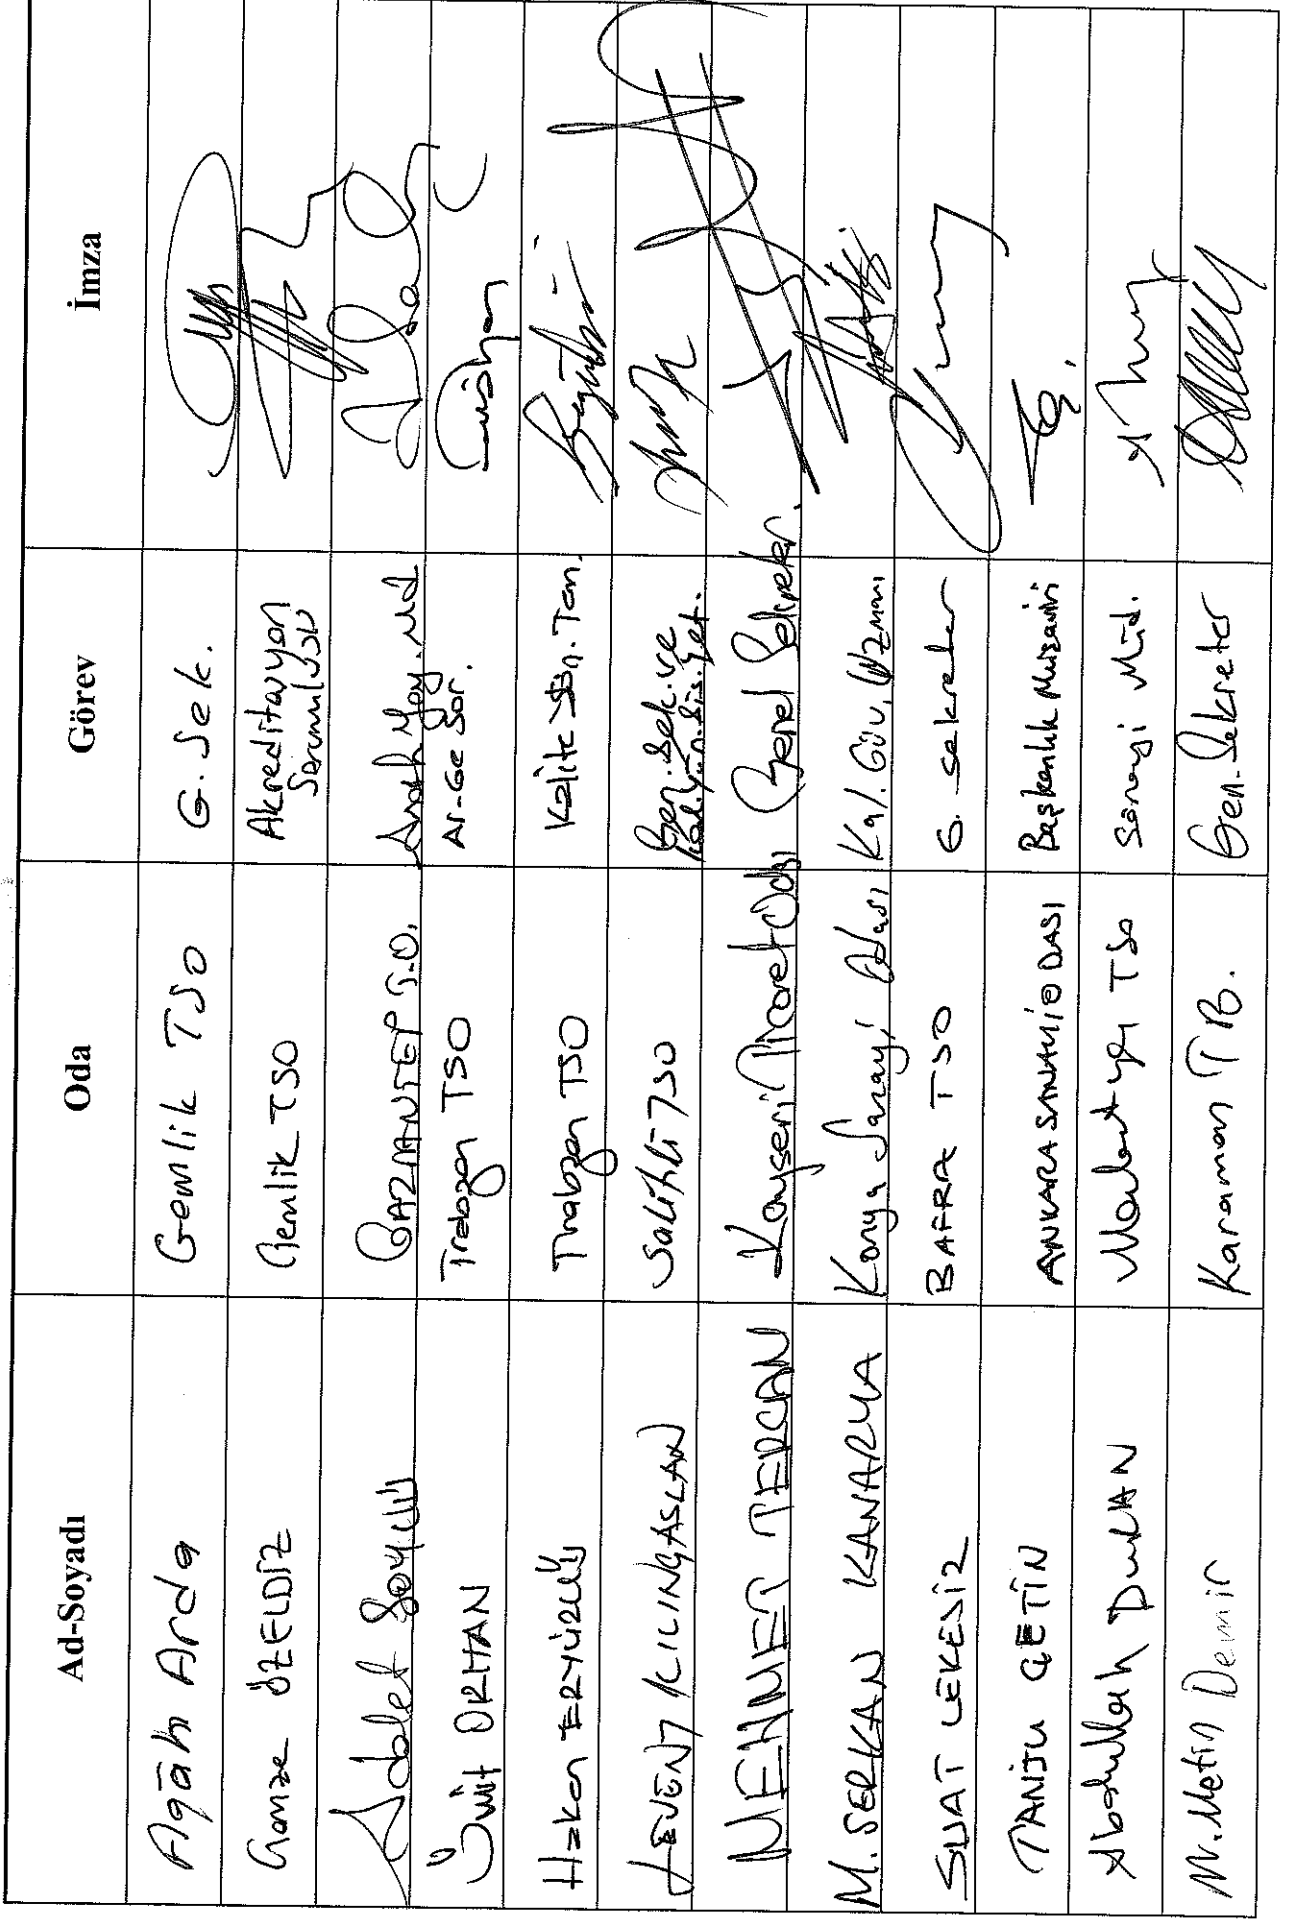 Ad-Soyadı Oda Görev İmza
Agâh Arda Gemlik TSO G. Sek.
Gamze ÖZELDİZ Gemlik TSO Akreditasyon Sorumlusu
Adalet Soylu GAZİANTEP T.O. Md
Ümit ORHAN Trabzon TSO Ar-Ge Sor.
Hakan ERYÜZLÜ Trabzon TSO Kalite Yön. Tem.
LEVENT KILINÇASLAN Salihli TSO Gen. Sek. ve
MEHMET TERCAN Kayseri Ticaret Odası Genel Sekreter.
M. SERKAN KANARYA Konya Sanayi Odası Kal. Güv. Uzmanı
SUAT LEKESİZ BAFRA TSO G. Sekreter
TANJU ÇETİN ANKARA SANAYİ ODASI Başkanlık Müşaviri
Abdullah DURAN Malatya TSO Sanayi Müd.
M. Metin Demir Karaman T.B. Gen. Sekreter